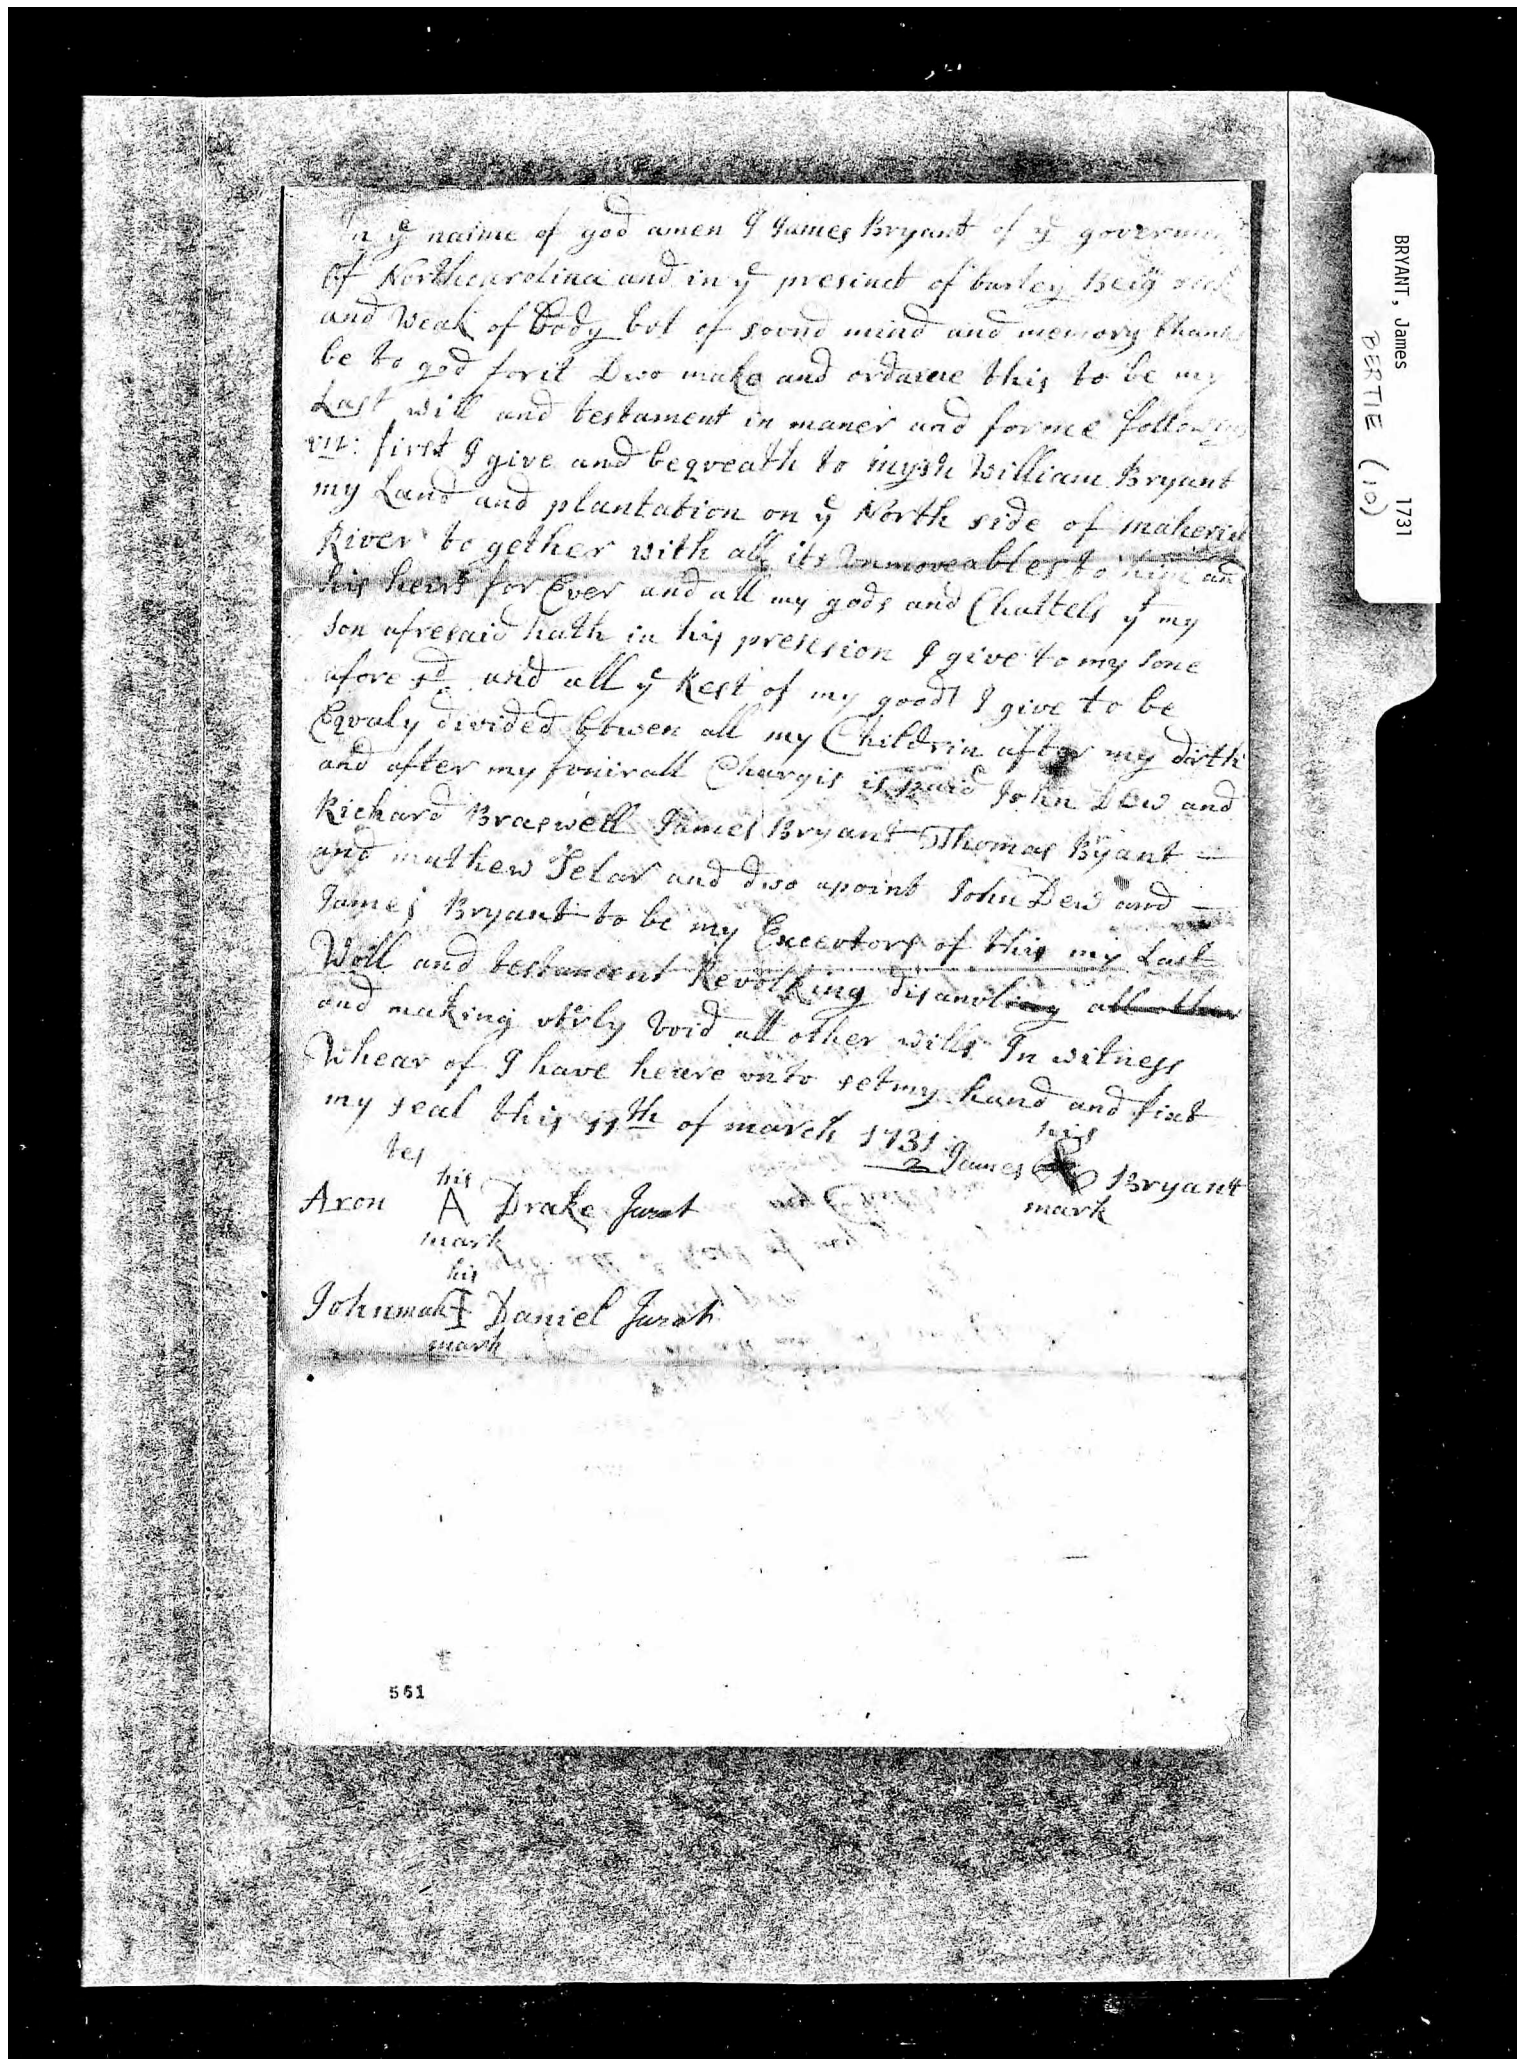 In ye naime of god amen I James Bryant of ye
of Northcarolina and in ye presinct of
and Weak of Body bot of sovnd mind and memory thank
be to god forit Dwo make and ordaine this to be my
Last will and testament in maner and forme following
viz: first I give and beqveath to William Bryant
my Land and plantation on ye North side of maherin
River to gether with all its Vnmoveables to him and
his heirs for Ever and all my gods and Chattels yt my
son afresaid hath in his presesion I give to my sone
afore sd and all ye Rest of my goods I give to be
Eqvaly divided btwen all my Childrin after my
and after my fonirall Chargis is paid John Dew and
Richard Braswell James Bryant Thomas Byant
and mathew Selar and dwo apoint John Dew and
James Bryant to be my Execvtors of this my Last
Will and testament Revolking disanvling all other
and making vtirly void all other wills In witness
Whear of I have heare vnto set my hand and fixt
my seal this 11th of march 1731
2
his
James Bryant
mark
tes
his
Aron A Drake Jurat
mark
his
John I Daniel Jurat
mark
561
BRYANT, James 1731
BERTIE (10)